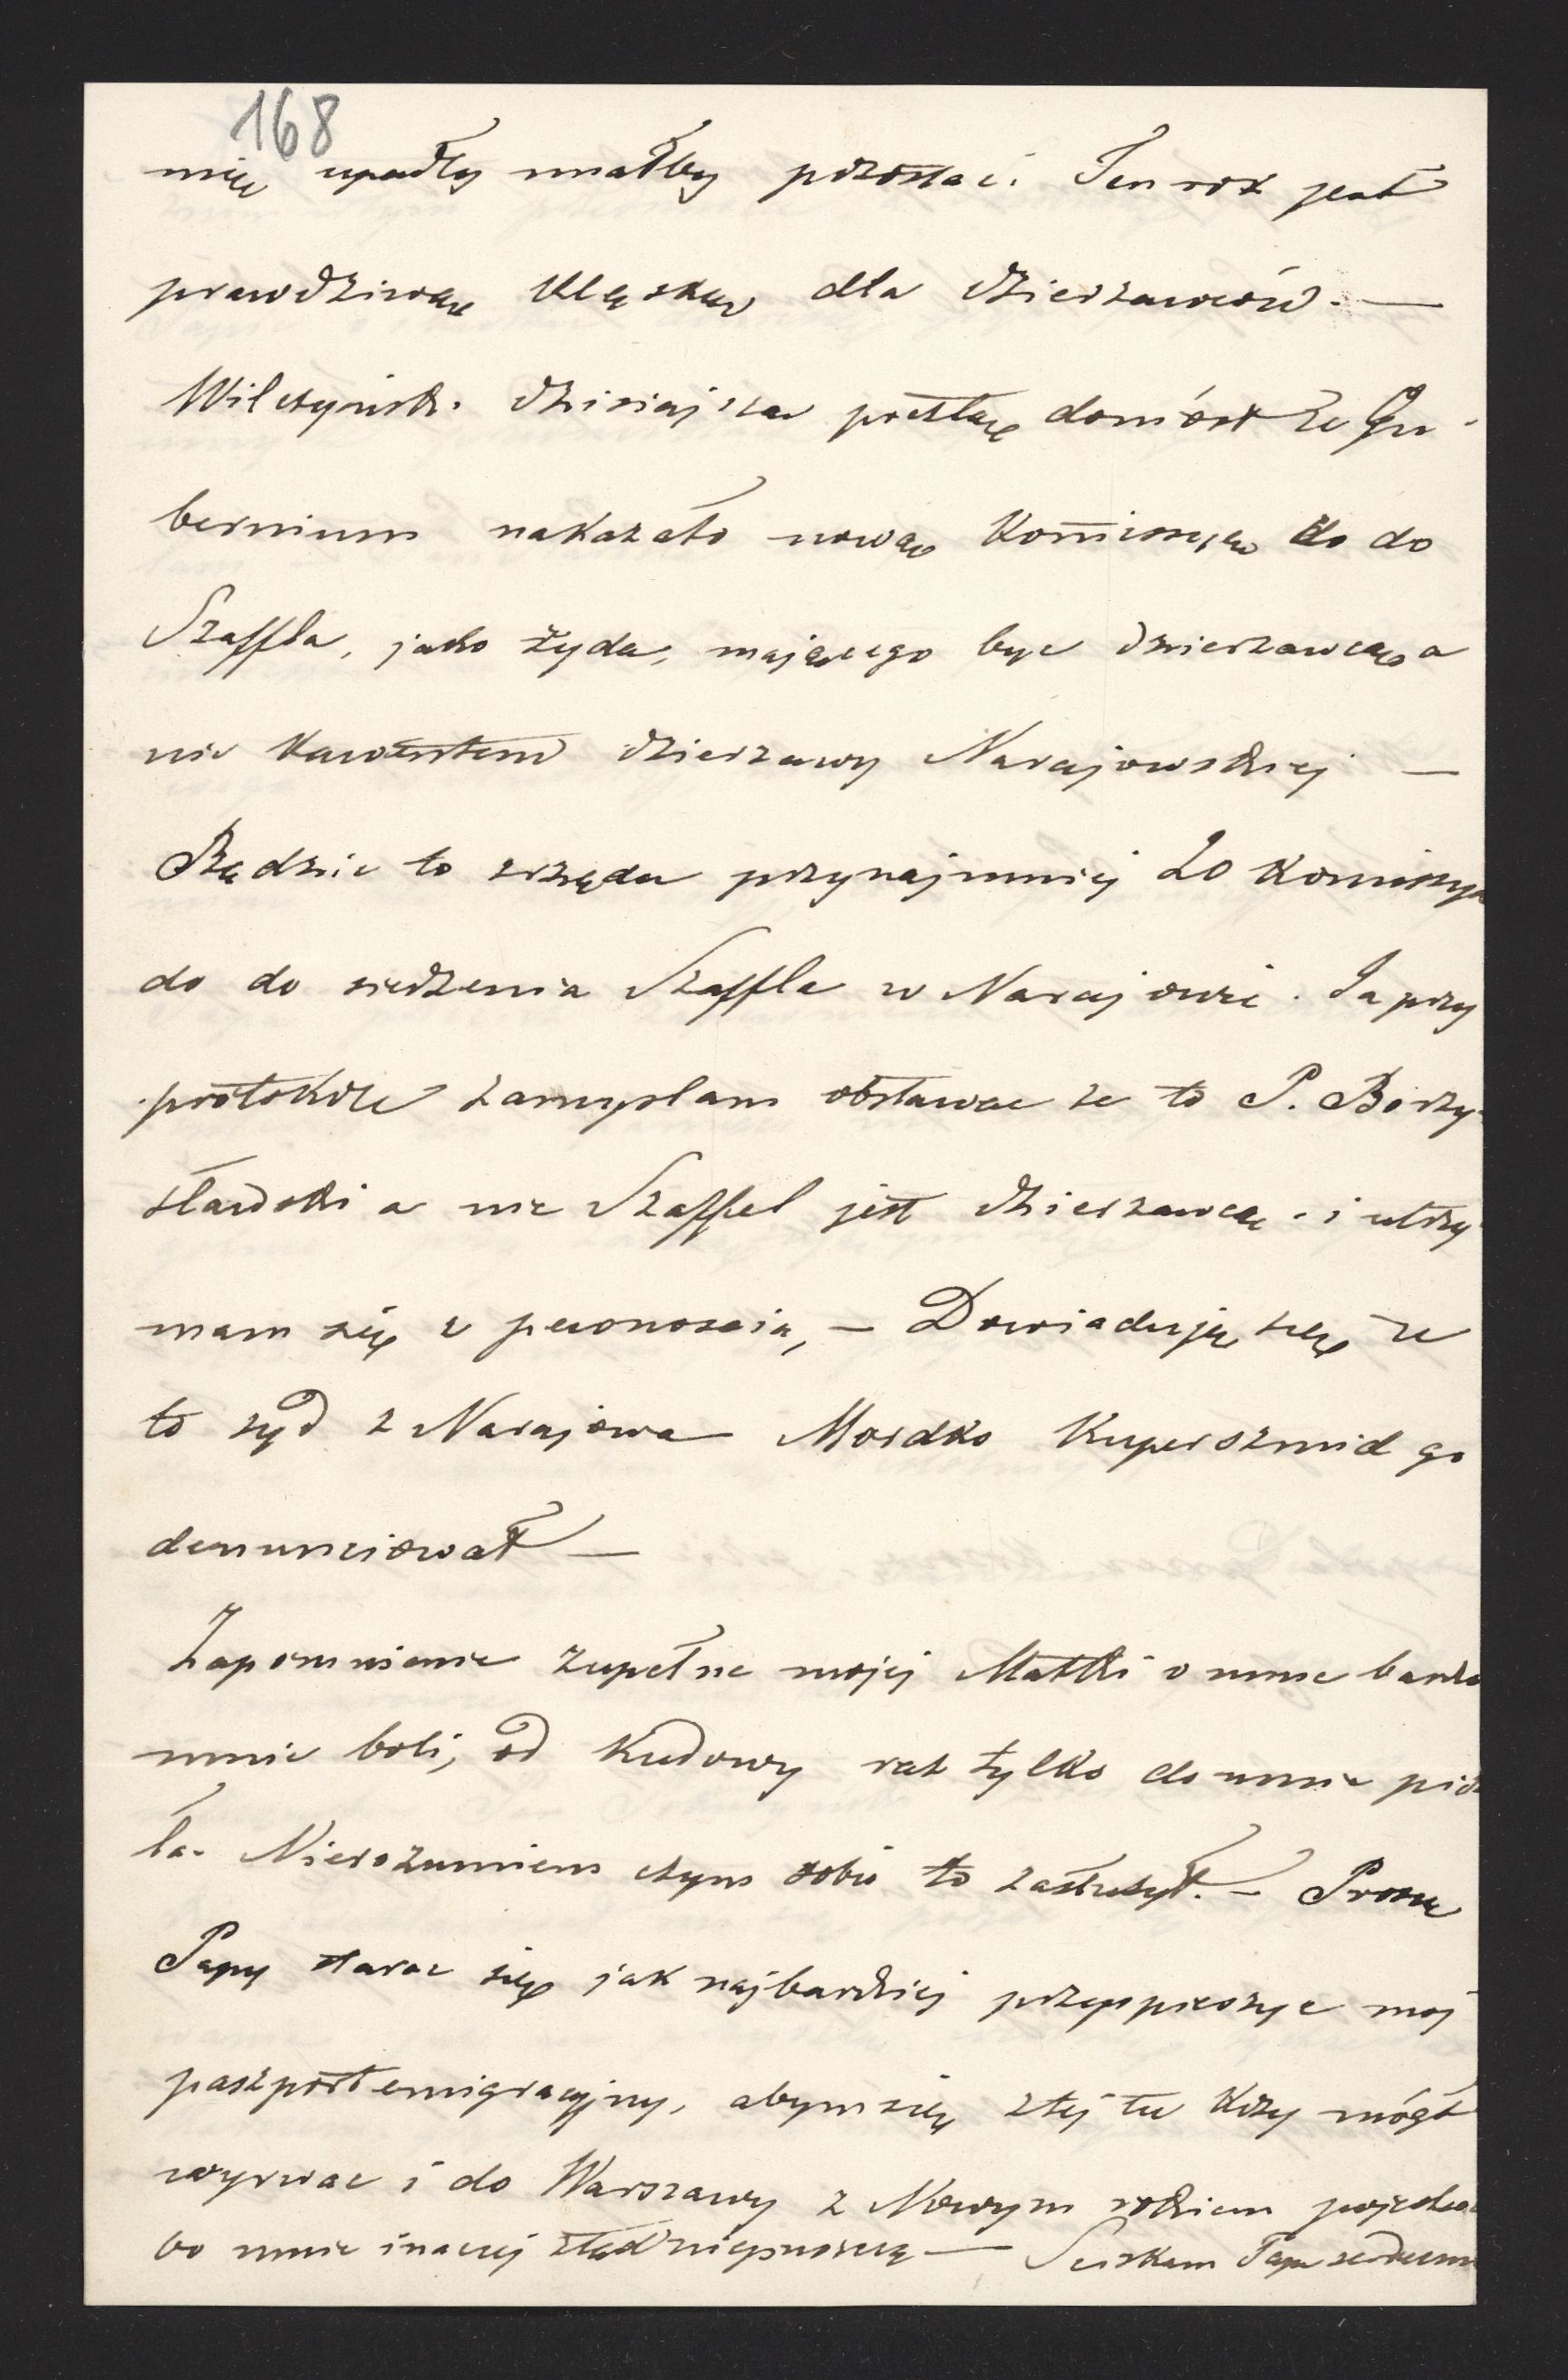 168
mię upadły miałby pozostać. Ten rok jest
prawdziwą klęską dla dzierzawców. —
Wilczyński dzisiajszą pocztą doniósł że Gu-
bernium nakazało nową Komissyę do do
Szaffla, jako żyda, mającego byc dzierzawcą a
nie Kawentem dzierzawy Narajowskiej —
Będzie to zrzędu przynajmniej 20 Komissya
do do siedzenia Szaffla w Narajowie. Ja przy
protokole zamyslam obstawac ze to P. Borzy-
sławski a nie Szaffel jest dzierzawcą. i utrzy
mam się z pewnoscią, — Dowiaduję się że
to zyd z Narajowa Mordko Kuperszmid go
denunciował —
Zapomnienie zupełne mojej Matki o mnie bardzo
mnie boli, od Kudowy raz tylko do mnie pisa
ła. Nierozumiem czym sobie to zasłużył. — Proszę
Papy starac się jak najbardziej przyspieszyc moj
paszport emigracyjny, abym się ztej tu
wyrwac i do Warszawy z Nowym rokiem pojechac
bo mnie inaczej ztąd — Sciskam Papę